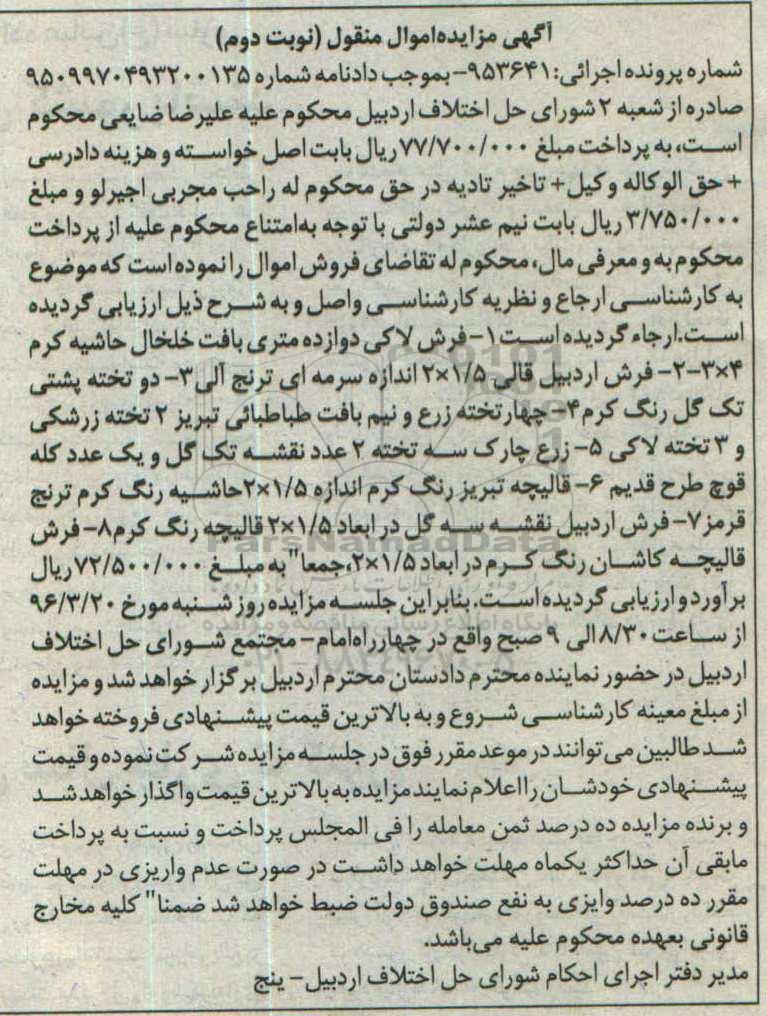 آگهی مزایده‌اموال منقول (نوبت دوم)
شماره پرونده اجرائی: ۹۵۳۶۴۱- بموجب دادنامه شماره ۹۵۰۹۹۷۰۴۹۳۲۰۰۱۳۵
صادره از شعبه ۲ شورای حل اختلاف اردبیل محکوم علیه علیرضا ضایعی محکوم
است، به پرداخت مبلغ ۷۷/۷۰۰/۰۰۰ ریال بابت اصل خواسته و هزینه دادرسی
+ حق الوکاله وکیل+ تاخیر تادیه در حق محکوم له راحب مجربی اجیرلو و مبلغ
۳/۷۵۰/۰۰۰ ریال بابت نیم عشر دولتی با توجه به‌امتناع محکوم علیه از پرداخت
محکوم به و معرفی مال، محکوم له تقاضای فروش اموال را نموده است که موضوع
به کارشناسی ارجاع و نظریه کارشناسی واصل و به شرح ذیل ارزیابی گردیده
است.ارجاء گردیده است ۱- فرش لاکی دوازده متری بافت خلخال حاشیه کرم
۴×۳-۲- فرش اردبیل قالی ۱/۵×۲ اندازه سرمه ای ترنج آلی ۳- دو تخته پشتی
تک گل رنگ کرم ۴- چهار تخته زرع و نیم بافت طباطبائی تبریز ۲ تخته زرشکی
و ۳ تخته لاکی ۵- زرع چارک سه تخته ۲ عدد نقشه تک گل و یک عدد کله
قوچ طرح قدیم ۶- قالیچه تبریز رنگ کرم اندازه ۱/۵×۲ حاشیه رنگ کرم ترنج
قرمز ۷- فرش اردبیل نقشه سه گل در ابعاد ۱/۵×۲ قالیچه رنگ کرم ۸- فرش
قالیچه کاشان رنگ کرم در ابعاد ۱/۵×۲،جمعا" به مبلغ ۷۲/۵۰۰/۰۰۰ ریال
برآورد و ارزیابی گردیده است. بنابراین جلسه مزایده روز شنبه مورخ ۹۶/۳/۲۰
از ساعت ۸/۳۰ الی ۹ صبح واقع در چهارراه‌امام- مجتمع شورای حل اختلاف
اردبیل در حضور نماینده محترم دادستان محترم اردبیل برگزار خواهد شد و مزایده
از مبلغ معینه کارشناسی شروع و به بالاترین قیمت پیشنهادی فروخته خواهد
شد طالبین می توانند در موعد مقرر فوق در جلسه مزایده شرکت نموده و قیمت
پیشنهادی خودشان را اعلام نمایند مزایده به بالاترین قیمت واگذار خواهد شد
و برنده مزایده ده درصد ثمن معامله را فی المجلس پرداخت و نسبت به پرداخت
مابقی آن حداکثر یکماه مهلت خواهد داشت در صورت عدم واریزی در مهلت
مقرر ده درصد وایزی به نفع صندوق دولت ضبط خواهد شد ضمنا" کلیه مخارج
قانونی بعهده محکوم علیه می‌باشد.
مدیر دفتر اجرای احکام شورای حل اختلاف اردبیل- ینج
ParsNamadData